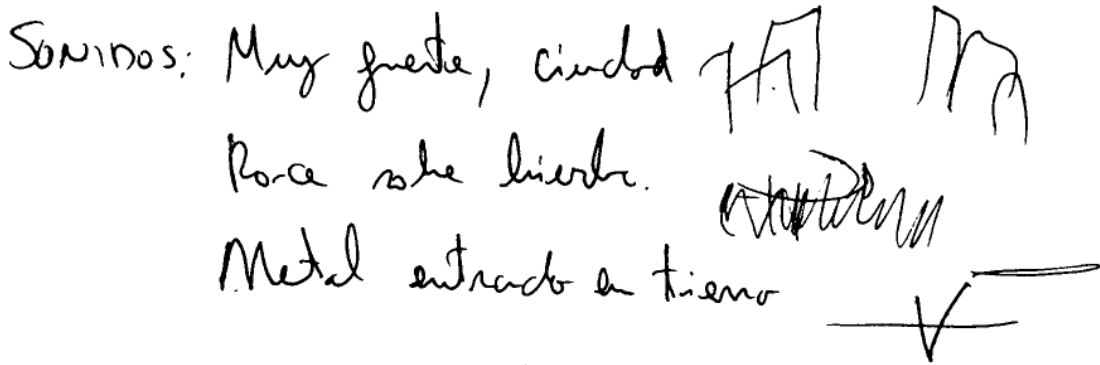 SONIDOS: Muy fuerte, ciudad
Roce sobre hierba.
Metal entrado en tierra